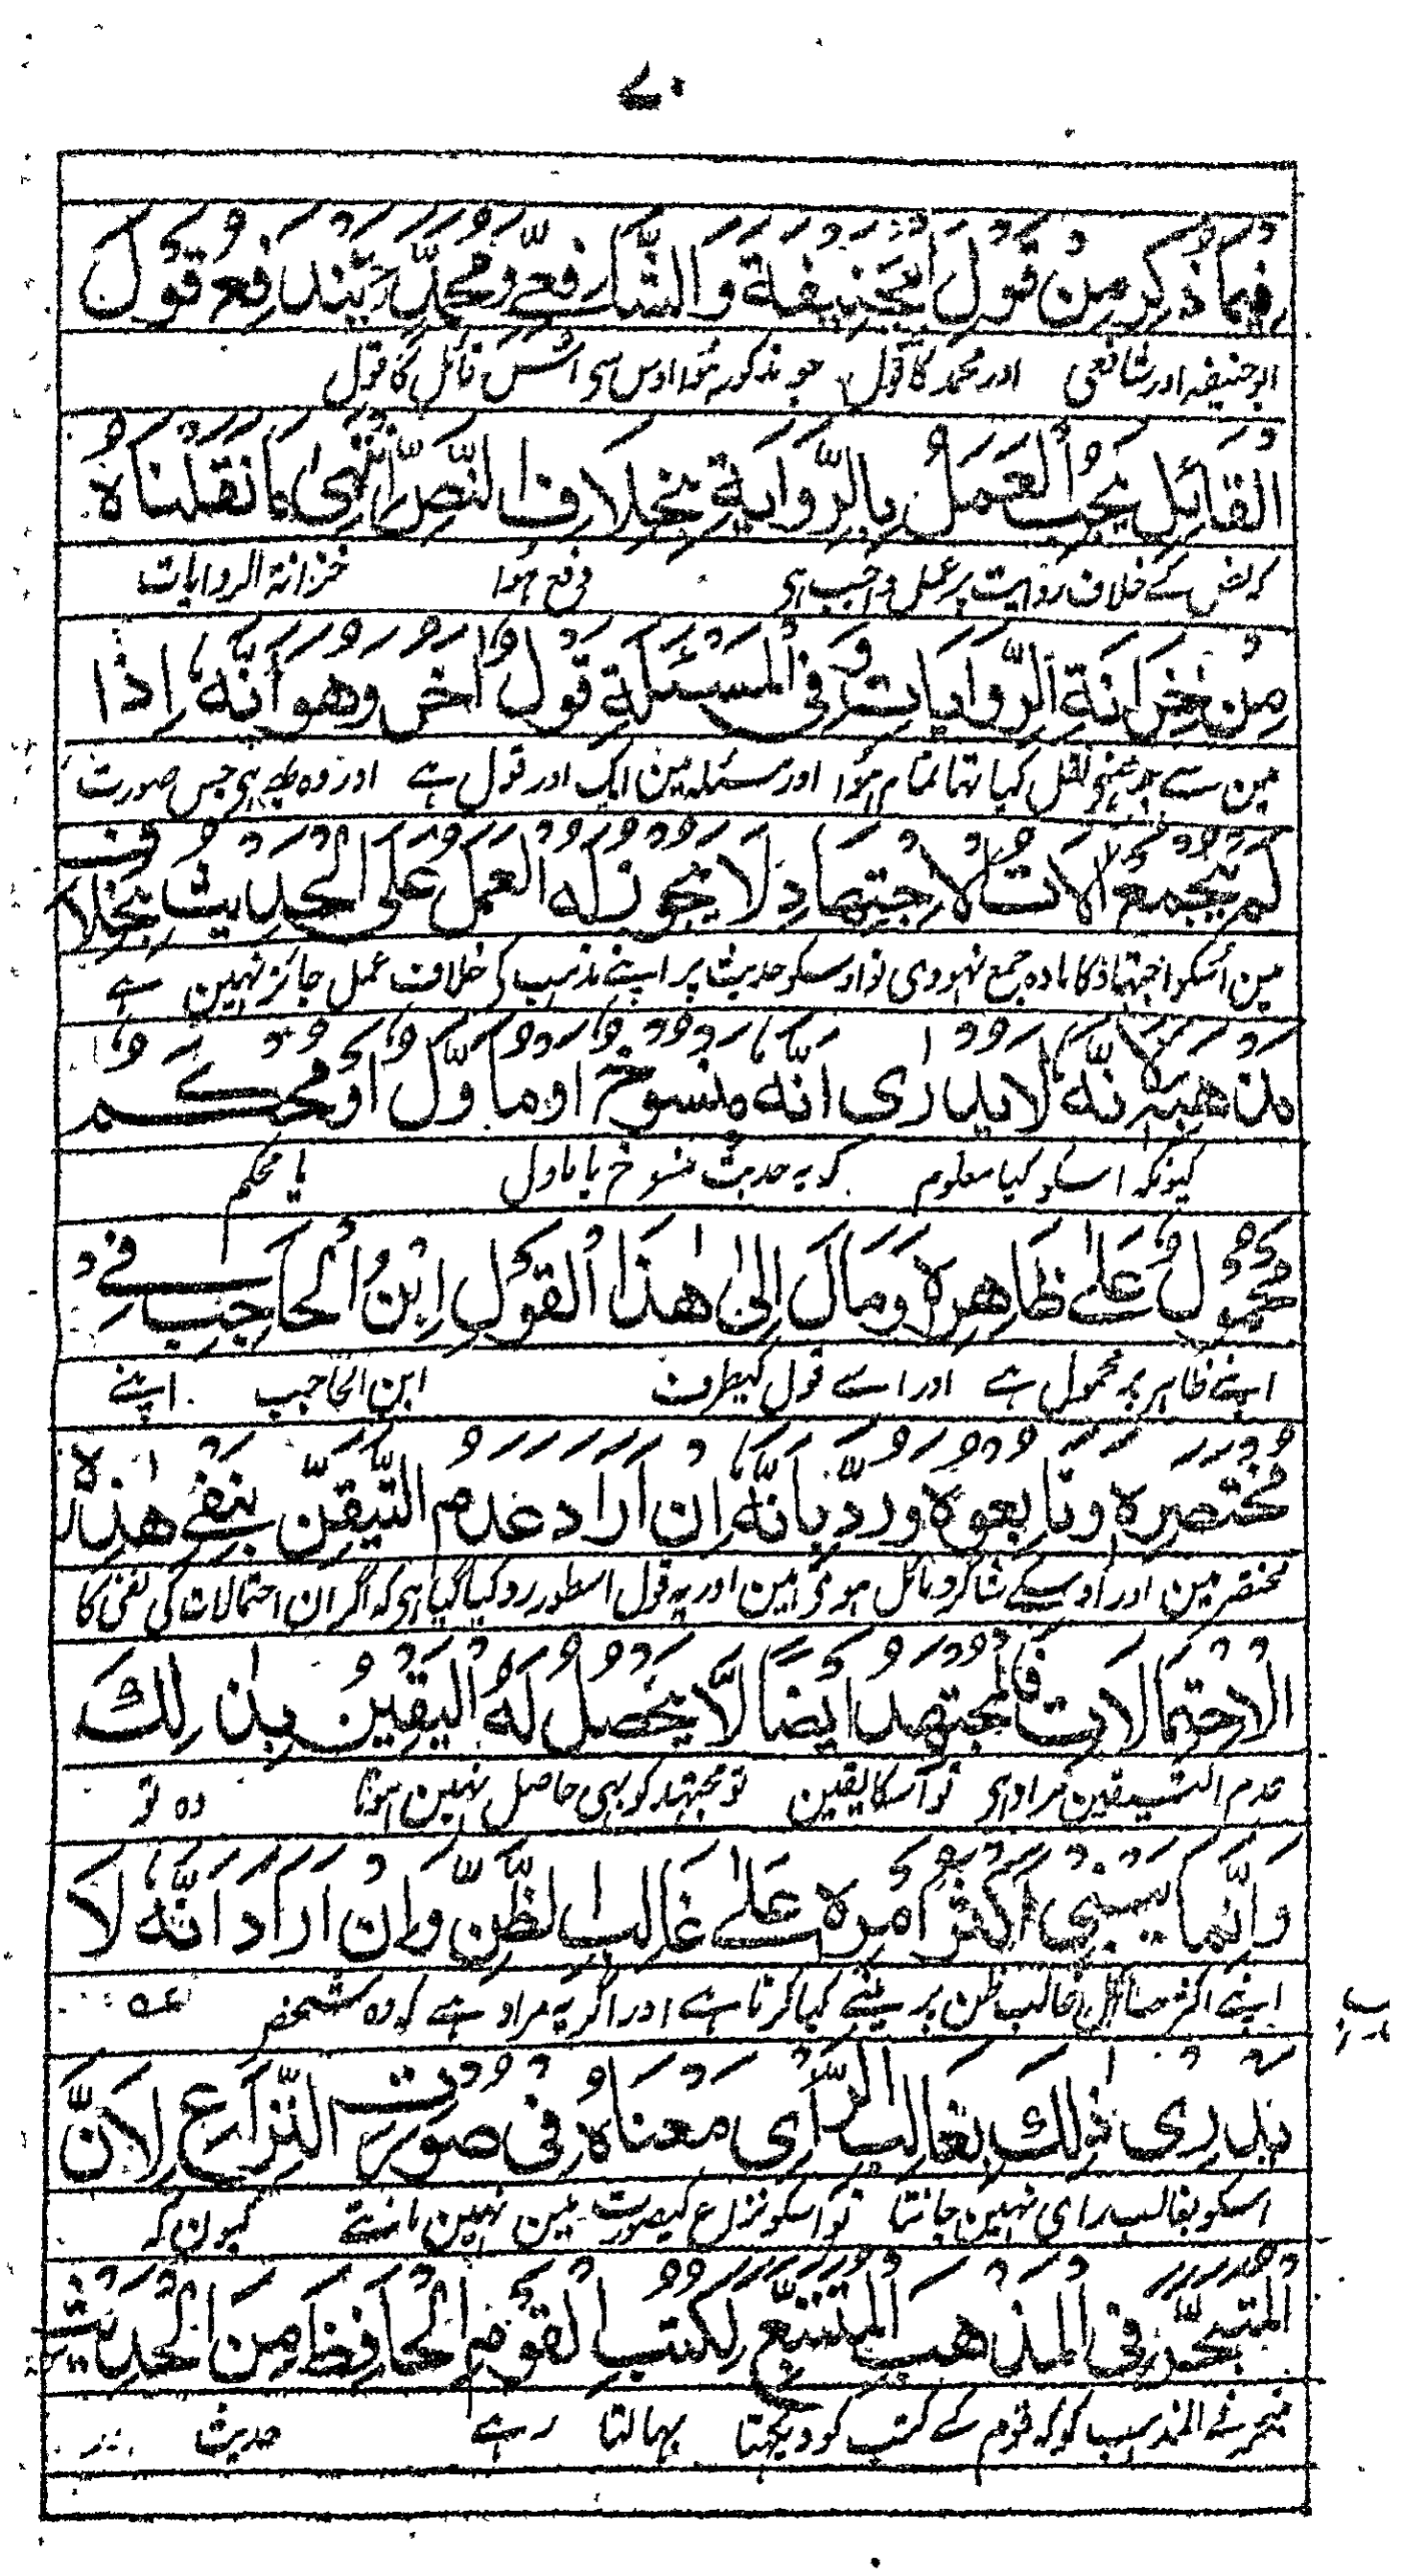 ۷۰
فِيمَا ذُكِرَ مِنْ قَوْلِ ابِیْحَنِیْفَةَ وَالشَّافِعِیْ وَمُحَمَّدٍ یَنْدَفِعُ قَوْلُ
ابو حنیفہ اور شافعی اور محمد کا قول جو مذکور ہوا اوس سی اس قائل کا قول
القَائِلِ یَجِبُ الْعَمَلُ بِالرِّوَایَةِ بِخِلَافِ النَّصِّ اِنْتَهٰی مَا نَقَلْنَاهُ
کہ نص کے خلاف روایت پر عمل واجب ہی دفع ہوا خزانۃ الروایات
مِنْ خِزَانَةِ الرِّوَایَاتِ وَفِی الْمَسْئَلَةِ قَوْلٌ اٰخَرُ وَهُوَ اَنَّهٗ اِذَا
مین سے جو ہمنی نقل کیا تھا تمام ہوا اور مسئلہ مین ایک اور قول ہے اور وہ یہ ہی جس صورت
لَمْ یَجْمَعْ اٰلَاتِ الْاِجْتِهَادِ لَا یَجُوْزُ لَهُ الْعَمَلُ عَلَی الْحَدِیْثِ بِخِلَافِ
مین اُسکو اجتہاد کا مادہ جمع نہووی تو اوسکو حدیث پر اپنے مذہب کی خلاف عمل جائز نہین ہے
مَذْهَبِهٖ لِاَنَّهٗ لَا یَدْرِیْ اَنَّهٗ مَنْسُوْخٌ اَوْ مَاَوَّلٌ اَوْ مُحْکَمٌ
کیونکہ اسکو کیا معلوم کہ یہ حدیث منسوخ یا ماول یا محکم
مَحْمُوْلٌ عَلٰی ظَاهِرِهٖ وَمَالَ اِلٰی هٰذَا الْقَوْلِ اِبْنُ الْحَاجِبِ فِیْ
اپنے ظاہر پر محمول ہے اور اسے قول کیطرف ابن الحاجب اپنے
مُخْتَصَرِهٖ وَتَابِعُوْهُ وَرُدَّ بِاَنَّهٗ اِنْ اَرَادَ عَدَمَ التَّیَقُّنِ بِنَفْیِ هٰذِهِ
مختصر مین اور اوسکے شاگرد مائل ہوئی ہین اور یہ قول اسطور رد کیا گیا ہی کہ اگر ان احتمالات کی نفی کا
الْاِحْتِمَالَاتِ فَالْمُجْتَهِدُ اَیْضًا لَّا یَحْصُلُ لَهُ الْیَقِیْنُ بِذٰلِكَ
عدم التیقین مراد ہی تو اسکا یقین تو مجتہد کو بہی حاصل نہین ہوتا وہ تو
وَاِنَّمَا یَبْنِیْ اَکْثَرَ اَمْرِهٖ عَلٰی غَالِبِ الظَّنِّ وَاِنْ اَرَادَ اَنَّهٗ لَا
اپنے اکثر مسائل غالب ظن پر بنے کیا کرتا ہے اور اگر یہ مراد ہے کہ وہ شخص
یَدْرِیْ ذٰلِكَ بِغَالِبِ الرَّأْیِ مَعْنَاهُ فِیْ صُوْرَتِ النِّزَاعِ لِاَنَّ
اسکو بغالب رای نہین جانتا تو اسکو نزاع کیصورت مین نہین مانتے کیون کہ
الْمُتَبَحِّرَ فِی الْمَذْهَبِ الْمُتَتَبِّعَ لِکُتُبِ الْقَوْمِ الْحَافِظَ مِنَ الْحَدِیْثِ
متبحر فے المذہب کو کہ قوم کے کتب کو دیکہتا بہالتا رہے حدیث